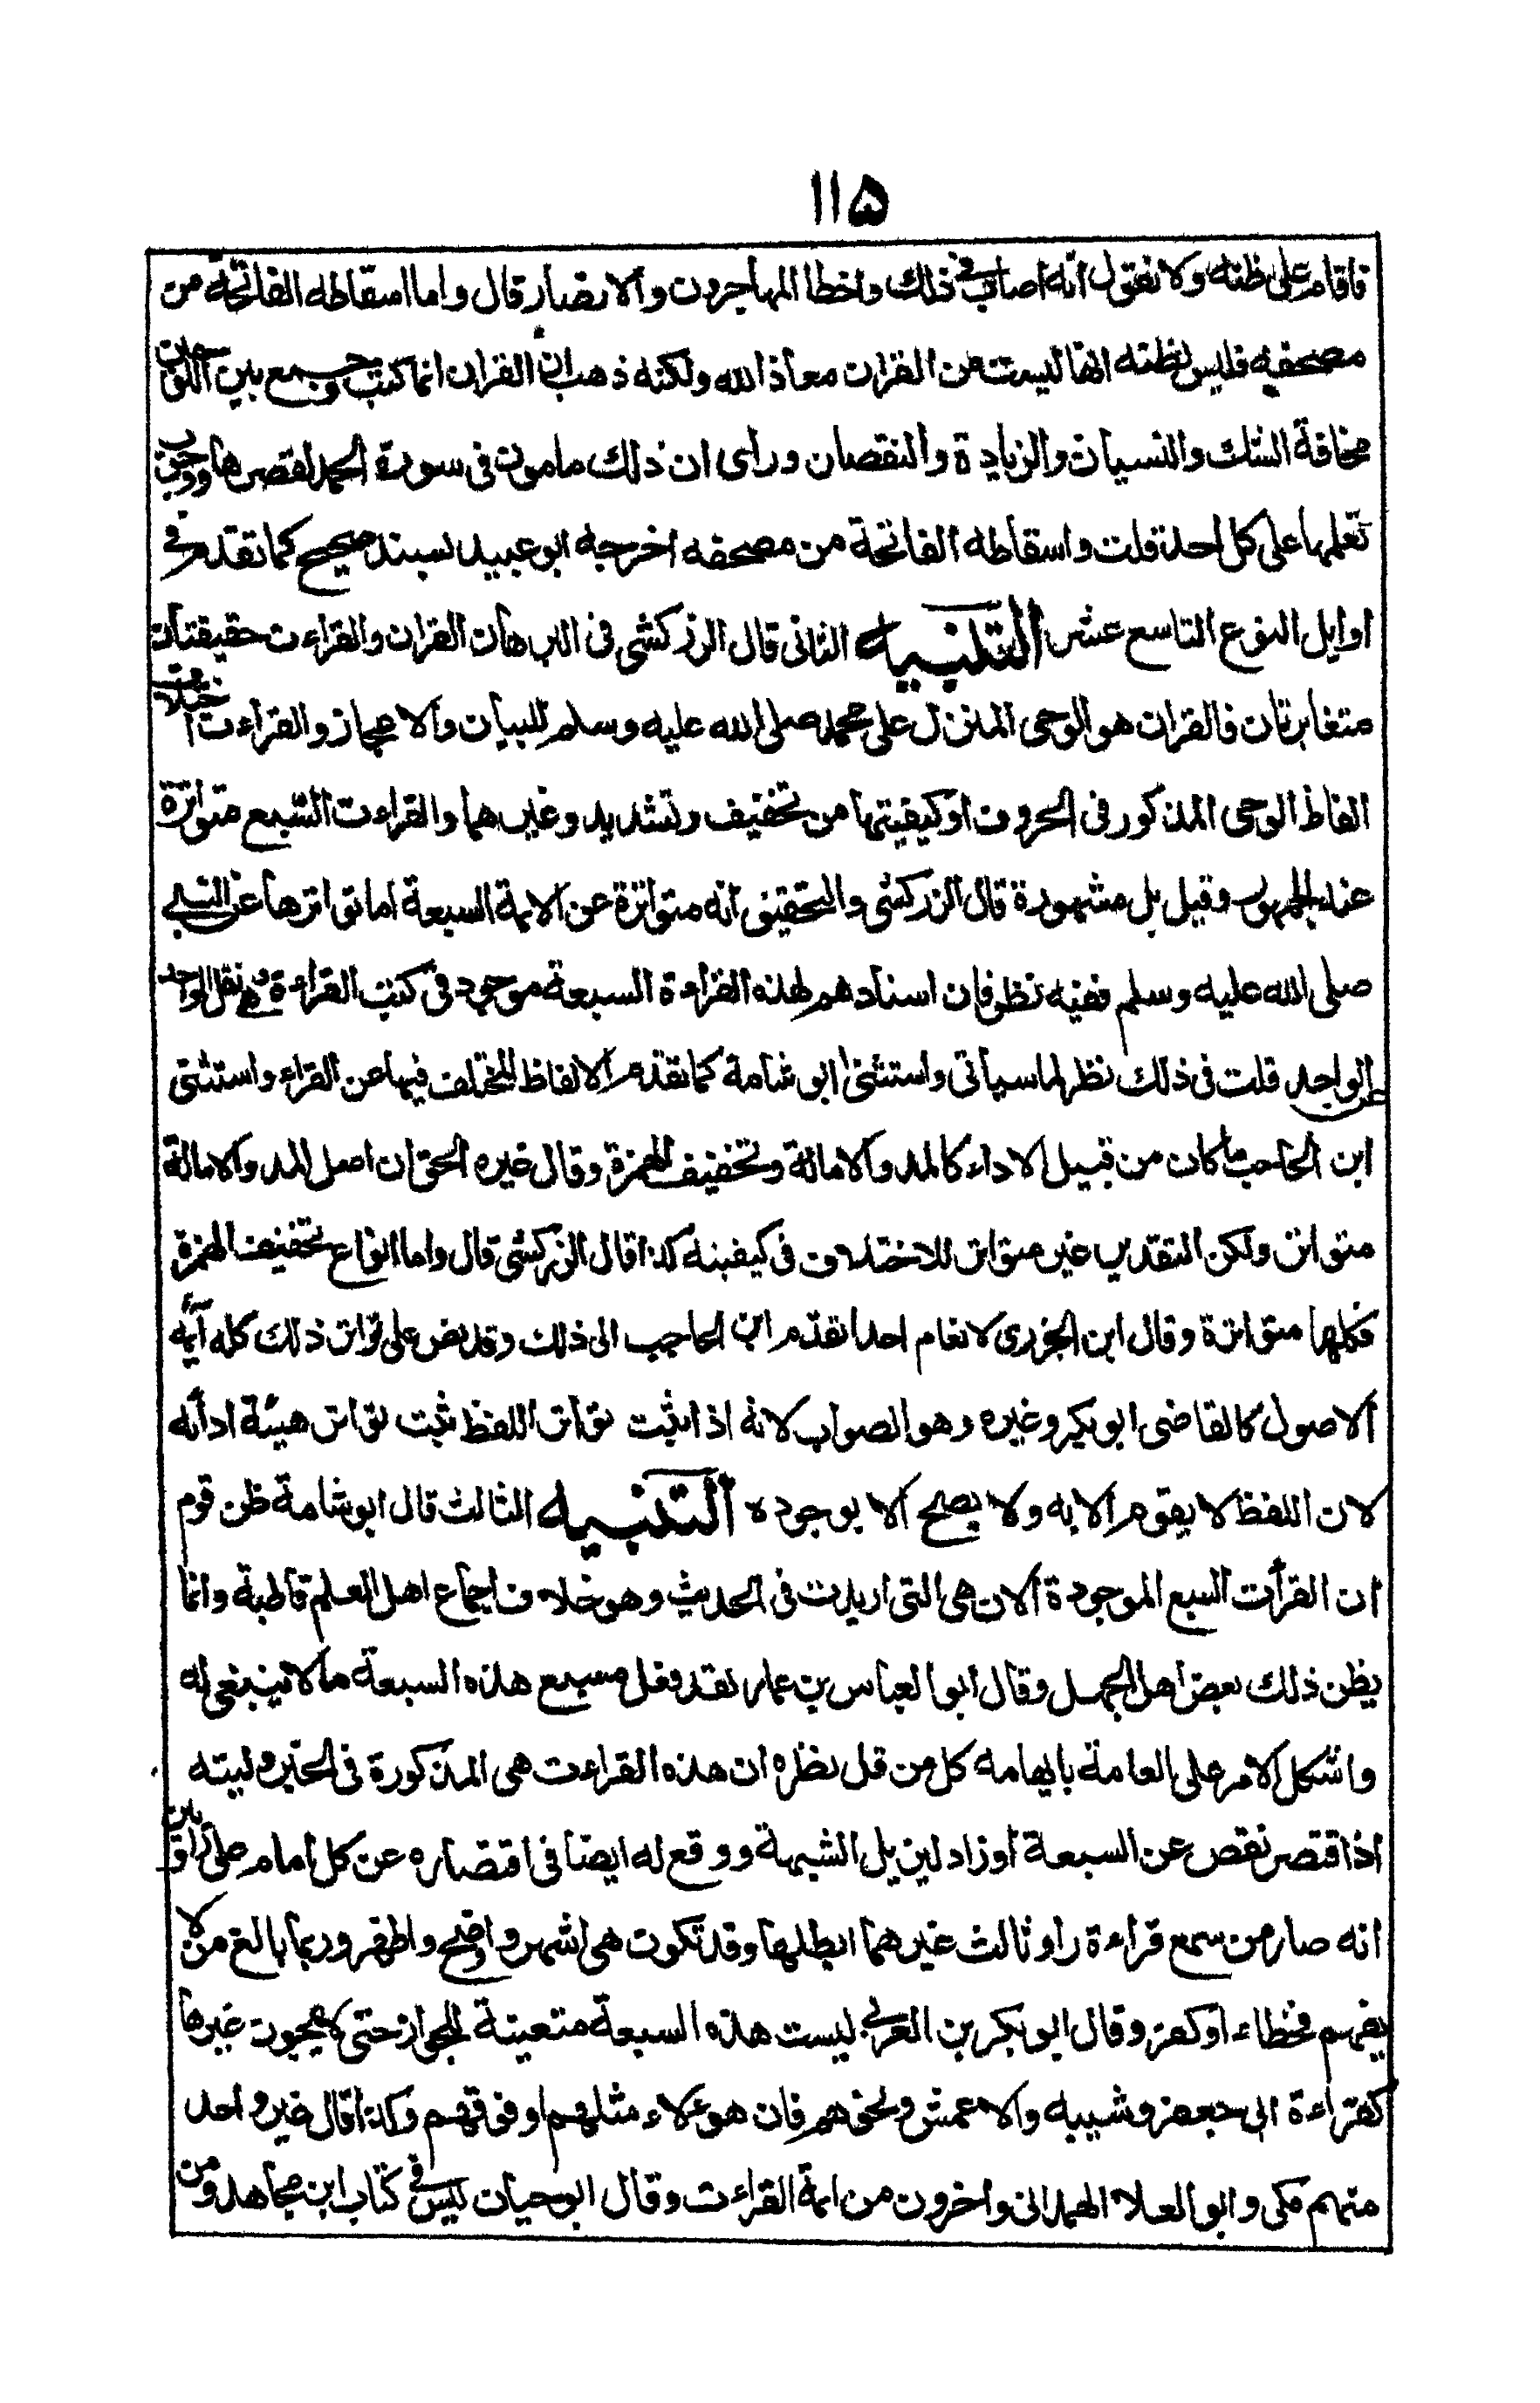 ۱۱۵
فاقام على ظنه ولا نقول انه اصاب في ذلك واخطا المهاجرون والانصار قال واما اسقاطه الفاتحة من
مصحفه فليس لظنه انها ليست من القران معاذ الله ولكنه ذهب الى ان القران انما كتب وجمع بين اللوحين
مخافة الشك والنسيان والزيادة والنقصان وراى ان ذلك مامون فى سورة الحمد لقصرها ووجوب
تعلمها على كل احد قلت واسقاطه الفاتحة من مصحفه اخرجه ابو عبيد بسند صحيح كما تقدم في
اوايل النوع التاسع عشر التنبيه الثانى قال الزركشى فى البرهان القران والقراءت حقيقتان
متغايرتان فالقران هو الوحى المنزل على محمد صلى الله عليه وسلم للبيان والاعجاز والقراءت اختلاف
الفاظ الوحى المذكور فى الحروف او كيفيتها من تخفيف وتشديد وغيرهما والقراءت السبع متواترة
عند الجمهور وقيل بل مشهورة قال الزركشى والتحقيق انه متواترة عن الايمة السبعة اما تواترها عن النبي
صلى الله عليه وسلم ففيه نظر فان اسنادهم لهذه القراءة السبعة موجود فى كتب القراءة وهى نقل الواحد
عن الواحد قلت فى ذلك نظر لما سياتى واستثنى ابو شامة كما تقدم الالفاظ المختلف فيها عن القراء واستثنى
ابن الحاجب ما كان من قبيل الاداء كالمد والامالة وتخفيف الهمزة وقال غيره الحق ان اصل المد والامالة
متواتر ولكن التقدير غير متواتر للاختلاف فى كيفيته كذا قال الزركشى قال واما انواع تخفيف الهمزة
فكلها متواترة وقال ابن الجزرى لا نعلم احدا تقدم ابن الحاجب الى ذلك وقد نص على تواتر ذلك كله ايمة
الاصول كالقاضى ابو بكر وغيره وهو الصواب لانه اذا ثبت تواتر اللفظ ثبت تواتر هيئة ادائه
لان اللفظ لا يقوم الا به ولا يصلح الا بوجوده التنبيه الثالث قال ابو شامة ظن قوم
ان القرأت السبع الموجودة الان هى التى اريدت فى الحديث وهو خلاف اجماع اهل العلم قاطبة وانما
يظن ذلك بعض اهل الجهل وقال ابو العباس بن عمار لقد فعل مسبع هذه السبعة ما لا ينبغى له
واشكل الامر على العامة بايهامه كل من قل نظره ان هذه القراءت هى المذكورة فى الخبر وليته
اذا اقتصر نقص عن السبعة او زاد ليزيل الشبهة ووقع له ايضا فى اقتصاره عن كل امام على راويين
انه صار من سمع قراءة راو ثالث غيرهما ابطلها وقد تكون هى اشهر واصح واظهر وربما بالغ من لا
يفهم فخطاء او كفر وقال ابو بكر بن العربى ليست هذه السبعة متعينة للجواز حتى لا يجوز غيرها
كقراءة ابى جعفر وشيبه والاعمش ونحوهم فان هولاء مثلهم او فوقهم وكذا قال غير واحد
منهم مكى وابو العلا الهمدانى واخرون من ايمة القراءت وقال ابو حيان ليس فى كتاب ابن مجاهد ومن